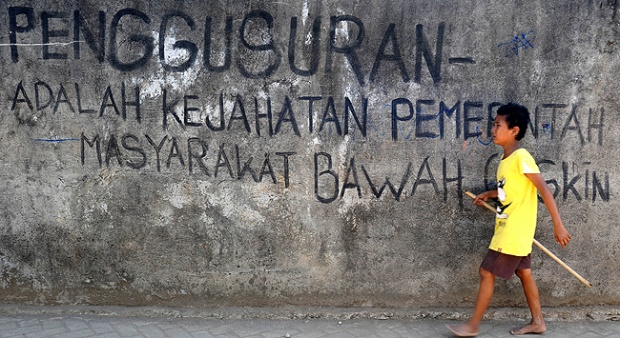 PENGGUSURAN-
ADALAH KEJAHATAN PEMERINTAH
MASYARAKAT BAWAH